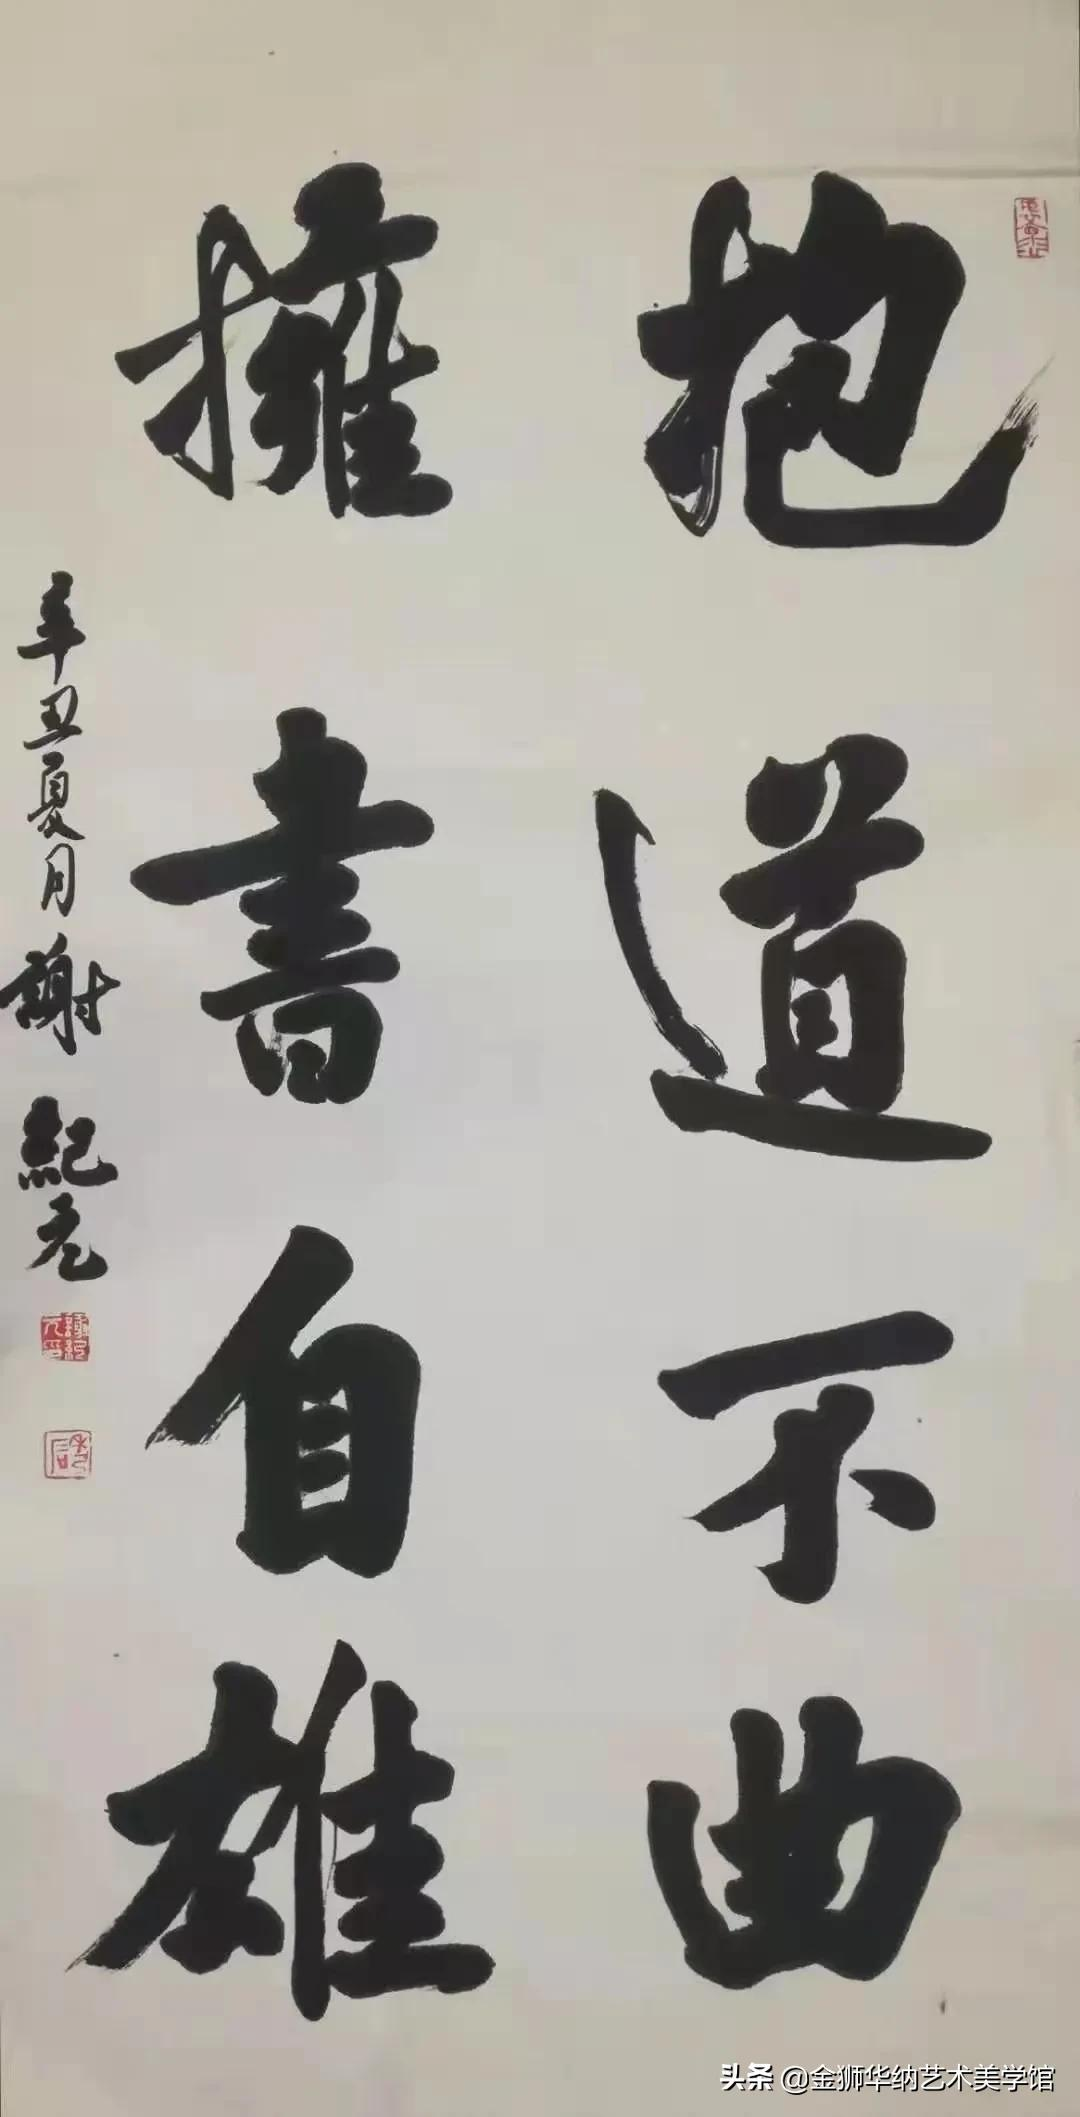 抱道不曲
擁書自雄
辛丑夏月謝紀元
謝紀元印
头条 @金狮华纳艺术美学馆